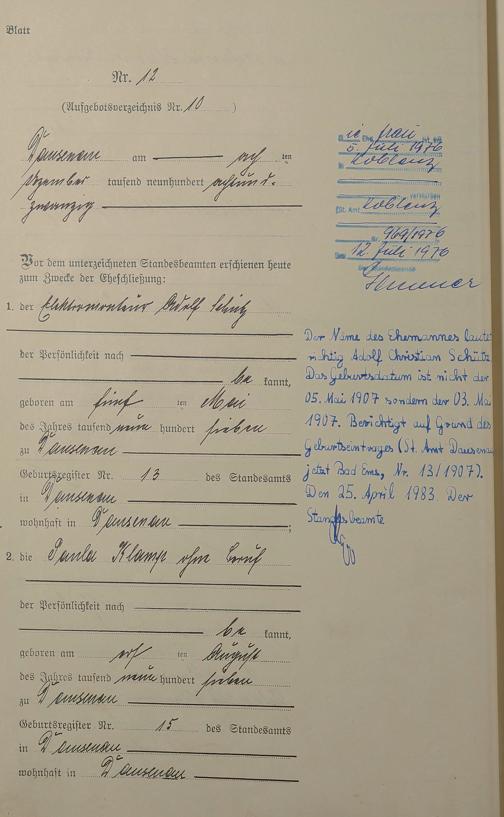 Blatt
Nr. 12
(Aufgebotsverzeichnis Nr. 10 )
Dausenau am acht ten
Dezember tausend neunhundert achtund-
zwanzig
Vor dem unterzeichneten Standesbeamten erschienen heute
zum Zwecke der Eheschließung:
1. der Elektromonteur Adolf Schütz
der Persönlichkeit nach
be kannt,
geboren am fünf ten Mai
des Jahres tausend neun hundert sieben
zu Dausenau
Geburtsregister Nr. 13 des Standesamts
in Dausenau
wohnhaft in Dausenau ;
2. die Paula Klamp ohne Beruf
der Persönlichkeit nach
be kannt,
geboren am ten August
des Jahres tausend neun hundert sieben
zu Dausenau
Geburtsregister Nr. 15 des Standesamts
in Dausenau
wohnhaft in Dausenau
Ehe frau ist am
5. Juli 1976
in Koblenz
verstorben
(St. Amt Koblenz
Nr. 969/1976
Den 12. Juli 1976
Der Standesbeamte
Der Name des Ehemannes laute
richtig Adolf Christian Schütz
Das Geburtsdatum ist nicht der
05. Mai 1907 sondern der 03. Mai
1907. Berichtigt auf Grund des
Geburtseintrages (St. Amt Dausenau
jetzt Bad Ems, Nr. 13/1907).
Den 25. April 1983 Der
Standesbeamte